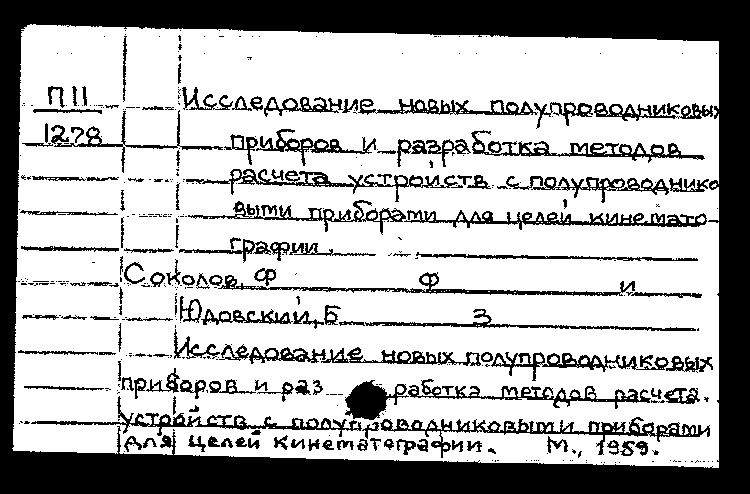 П11
1278
Исследование новых полупроводниковых
приборов и разработка методов
расчета устройств с полупроводнико
выми приборами для целей кинемато-
графии.
Соколов, Ф Ф и
Юдовский, Б З
Исследование новых полупроводниковых
приборов и раз работка методов расчета.
устройств с полупроводниковыми приборами
для целей кинематографии. М., 1959.